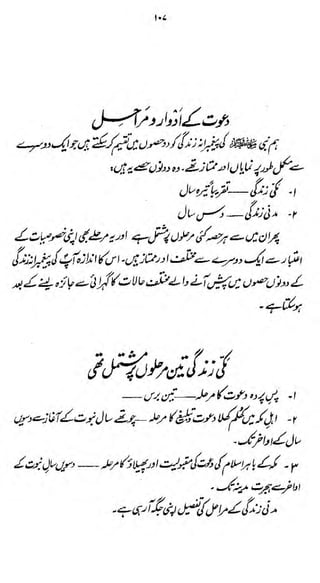 ۱۰۷
دعوت کے اَدوار و مَراحِل
ہم نبی ﷺ کی پیغمبرانہ زندگی کو دو حصوں میں تقسیم کر سکتے ہیں جو ایک دوسرے
سے مکمل طور پر نمایاں اور ممتاز تھے۔ وہ دونوں حصے یہ ہیں:
۱۔ مکّی زندگی — تقریباً تیرہ سال
۲۔ مدنی زندگی — دس سال
پھر ان میں سے ہر حصہ کئی مرحلوں پر مشتمل ہے اور یہ مرحلے بھی اپنی خصوصیات کے
اعتبار سے ایک دوسرے سے مختلف اور ممتاز ہیں۔ اس کا اندازہ آپؐ کی پیغمبرانہ زندگی
کے دونوں حصوں میں پیش آنے والے مختلف حالات کا گہرائی سے جائزہ لینے کے بعد
ہو سکتا ہے۔
مکّی زندگی تین مرحلوں پر مشتمل تھی
۱۔ پسِ پردہ دعوت کا مرحلہ — تین برس —
۲۔ اہلِ مکہ میں کھلم کھلا دعوت و تبلیغ کا مرحلہ — چوتھے سال نبوت کے آغاز سے دسویں
سال کے اواخر تک۔
۳۔ مکہ کے باہر اسلام کی دعوت کی مقبولیت اور پھیلاؤ کا مرحلہ — دسویں سالِ نبوت کے
اواخر سے ہجرتِ مدینہ تک۔
مدنی زندگی کے مراحل کی تفصیل اپنی جگہ آ رہی ہے۔